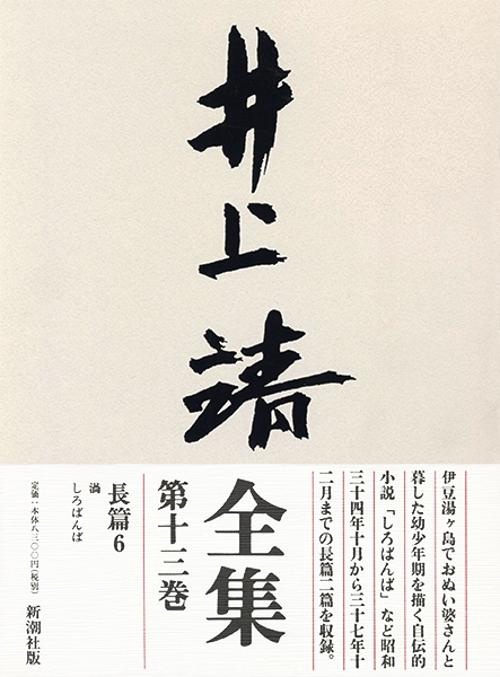 井上靖
全集
第十三巻
長篇6
渦
しろばんば
定価：本体八三〇〇円(税別)
新潮社版
伊豆湯ヶ島でおぬい婆さんと
暮した幼少年期を描く自伝的
小説「しろばんば」など昭和
三十四年十月から三十七年十
二月までの長篇二篇を収録。